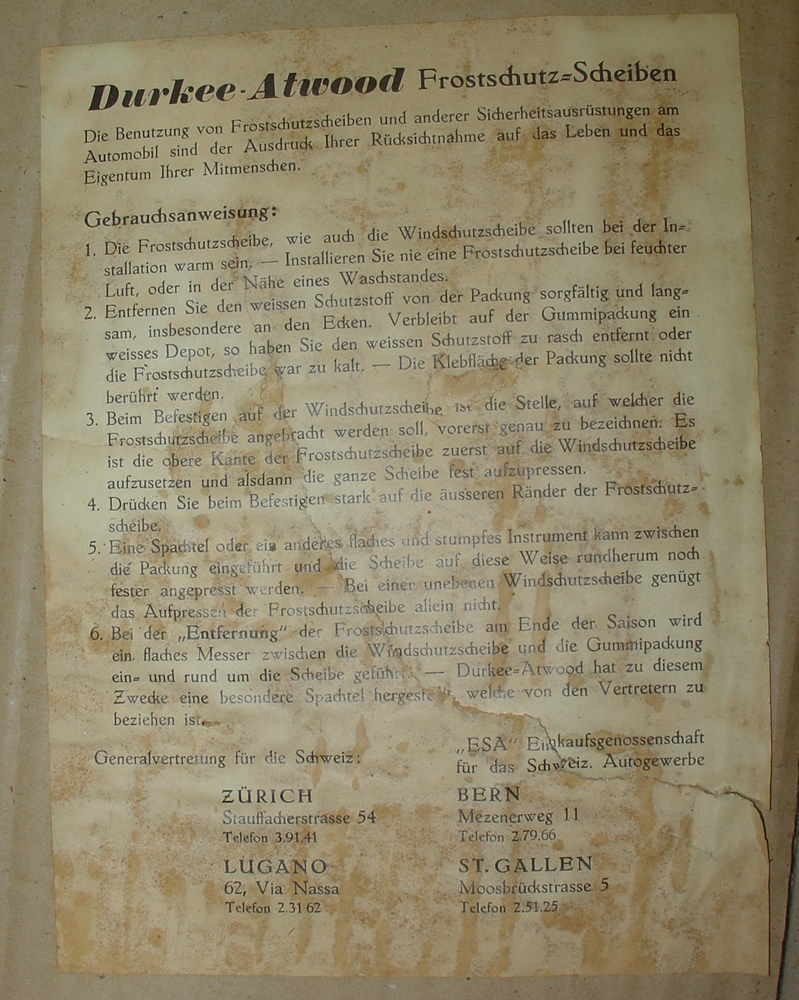 Durkee-Atwood Frostschutz=Scheiben
Die Benutzung von Frostschutzscheiben und anderer Sicherheitsausrüstungen am
Automobil sind der Ausdruck Ihrer Rücksichtnahme auf das Leben und das
Eigentum Ihrer Mitmenschen.
Gebrauchsanweisung:
1. Die Frostschutzscheibe, wie auch die Windschutzscheibe sollten bei der In=
stallation warm sein. — Installieren Sie nie eine Frostschutzscheibe bei feuchter
Luft, oder in der Nähe eines Waschstandes.
2. Entfernen Sie den weissen Schutzstoff von der Packung sorgfältig und lang=
sam, insbesondere an den Ecken. Verbleibt auf der Gummipackung ein
weisses Depot, so haben Sie den weissen Schutzstoff zu rasch entfernt oder
die Frostschutzscheibe war zu kalt. — Die Klebfläche der Packung sollte nicht
berührt werden.
3. Beim Befestigen auf der Windschutzscheibe ist die Stelle, auf welcher die
Frostschutzscheibe angebracht werden soll, vorerst genau zu bezeichnen. Es
ist die obere Kante der Frostschutzscheibe zuerst auf die Windschutzscheibe
aufzusetzen und alsdann die ganze Scheibe fest aufzupressen.
4. Drücken Sie beim Befestigen stark auf die äusseren Ränder der Frostschutz=
scheibe.
5. Eine Spachtel oder ein anderes flaches und stumpfes Instrument kann zwischen
die Packung eingeführt und die Scheibe auf diese Weise rundherum noch
fester angepresst werden. — Bei einer unebenen Windschutzscheibe genügt
das Aufpressen der Frostschutzscheibe allein nicht.
6. Bei der „Entfernung“ der Frostschutzscheibe am Ende der Saison wird
ein flaches Messer zwischen die Windschutzscheibe und die Gummipackung
ein= und rund um die Scheibe geführt. — Durkee=Atwood hat zu diesem
Zwecke eine besondere Spachtel hergestellt, welche von den Vertretern zu
beziehen ist.
Generalvertretung für die Schweiz:
„ESA“ Einkaufsgenossenschaft
für das Schweiz. Autogewerbe
ZÜRICH
Stauffacherstrasse 54
Telefon 3.91.41
BERN
Mezenerweg 11
Telefon 2.79.66
LUGANO
62, Via Nassa
Telefon 2.31 62
ST. GALLEN
Moosbrückstrasse 5
Telefon 2.51.25